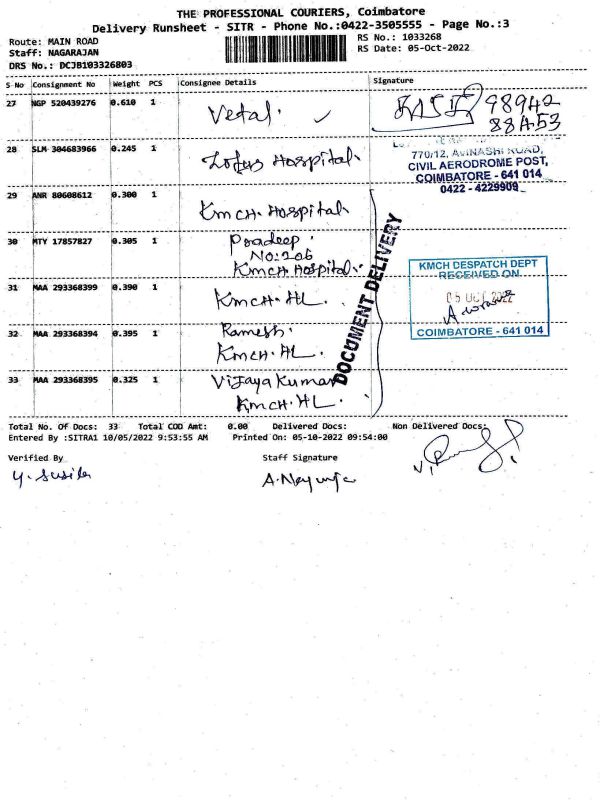 THE PROFESSIONAL COURIERS, Coimbatore
Delivery Runsheet - SITR - Phone No.:0422-3505555 - Page No.:3
Route: MAIN ROAD RS No.: 1033268
Staff: NAGARAJAN RS Date: 05-Oct-2022
DRS No.: DCJB103326803
S No Consignment No Weight PCS Consignee Details Signature
27 NGP 520439276 0.610 1 Vetal. 98942
88453
28 SLM 304683966 0.245 1 Lotus Hospital.
770/12, AVINASHI ROAD,
CIVIL AERODROME POST,
COIMBATORE - 641 014
0422 - 4229909
29 ANR 80608612 0.300 1 KmCH. Hospital.
30 MTY 17857827 0.305 1 Pradeep.
No:206
KmCH Hospital.
DOCUMENT DELIVERY
KMCH DESPATCH DEPT
RECEIVED ON
05 OCT 2022
COIMBATORE - 641 014
31 MAA 293368399 0.390 1 KmCH. HL.
32 MAA 293368394 0.395 1 Ramesh.
KmCH. HL.
33 MAA 293368395 0.325 1 Vijaya Kumar
KmCH. HL.
Total No. Of Docs: 33 Total COD Amt: 0.00 Delivered Docs: Non Delivered Docs:
Entered By :SITRA1 10/05/2022 9:53:55 AM Printed On: 05-10-2022 09:54:00
Verified By Staff Signature